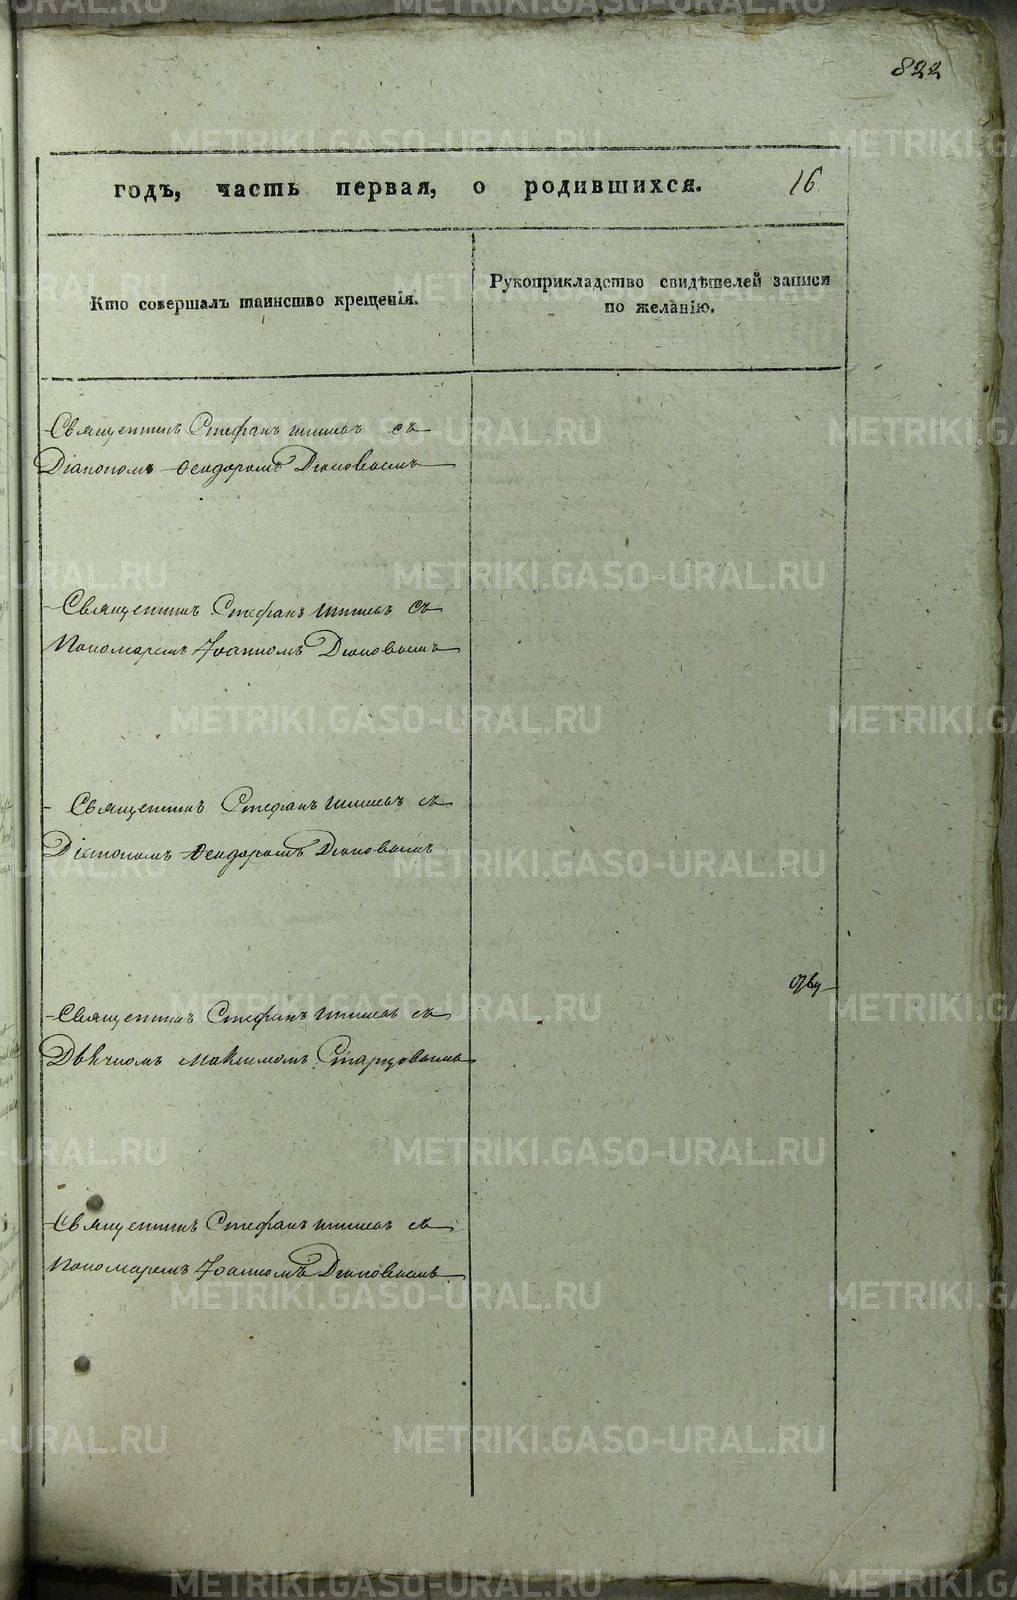 822
годъ, часть первая, о родившихся. 16
Кто совершалъ таинство крещенія.
Рукоприкладство свидѣтелей записи
по желанію.
Священникъ Стефанъ съ
Діакономъ Ѳеодоромъ
Священникъ Стефанъ съ
Пономаремъ Іоанномъ
Священникъ Стефанъ съ
Діакономъ Ѳеодоромъ
Священникъ Стефанъ съ
Дьячкомъ Максимомъ
Священникъ Стефанъ съ
Пономаремъ Іоанномъ
METRIKI.GASO-URAL.RU